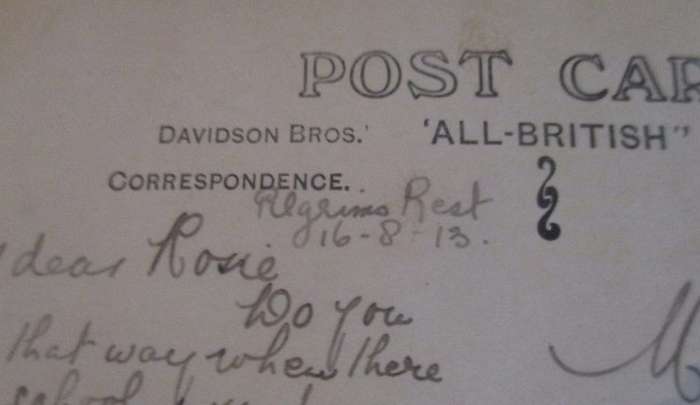 POST CAR
DAVIDSON BROS.' 'ALL-BRITISH"
CORRESPONDENCE.
Pilgrims Rest
16-8-13.
dear Rosie
Do you
that way when there
school